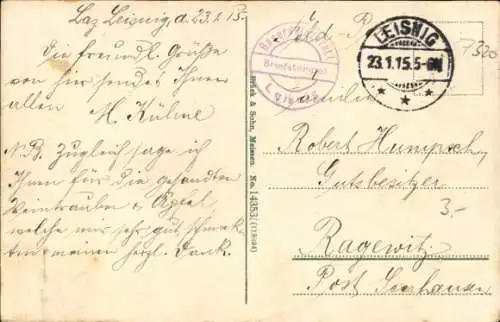 Laz Leisnig, d. 23.1.15.
Die freundl. Grüße
von hier sendet Ihnen
allen M. Kühne
N.B. Zugleich sage ich
Ihnen für die gesandten
Weintrauben & Äpfel
welche mir sehr gut schmek-
ten meinen herzl. Dank.
Brück & Sohn, Meissen. No. 14353/
Feld P
Briefstempel
LEISNIG
23.1.15.5-6N.
7320
Familie
Robert Humpsch,
Gutsbesitzer
3.-
Ragewitz
Post Seerhausen